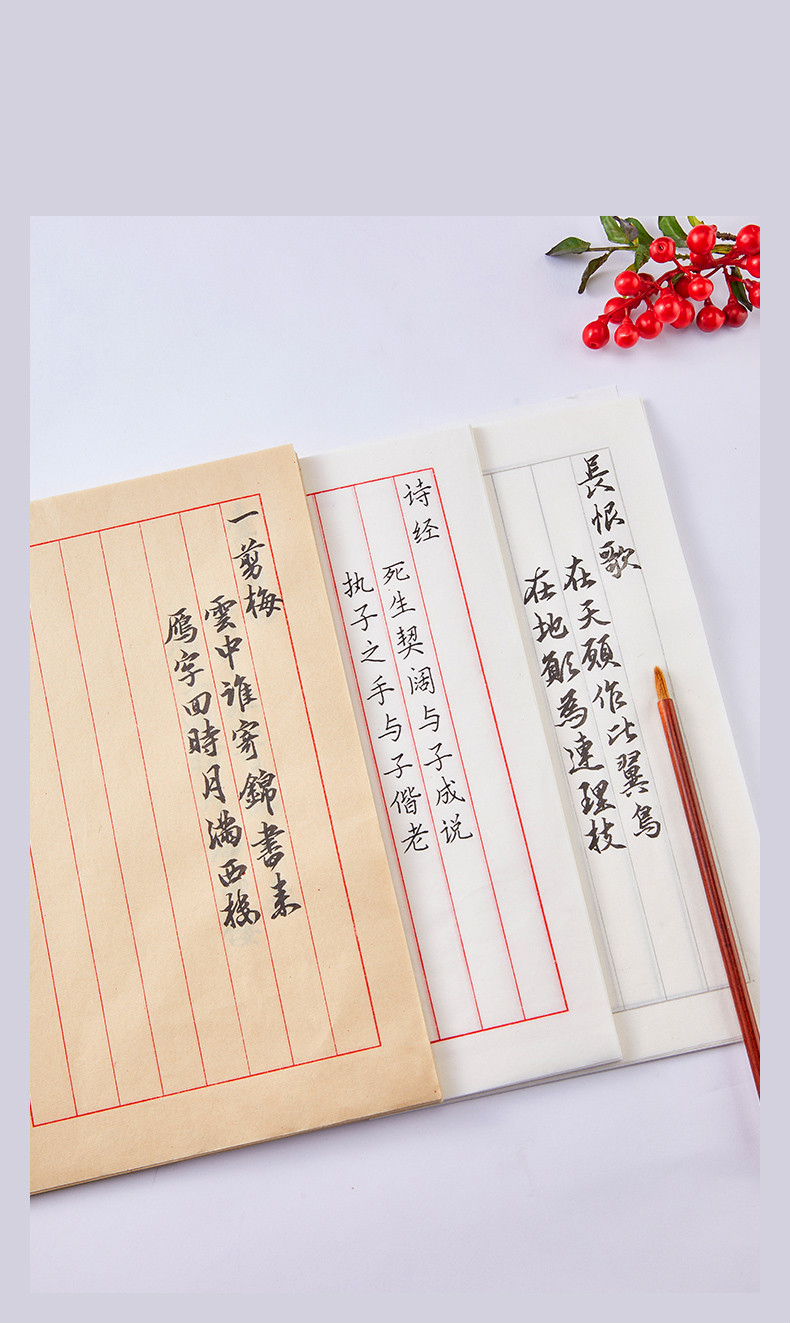 一剪梅
雲中谁寄錦書来
鴈字回時月滿西楼
诗经
死生契阔与子成说
执子之手与子偕老
長恨歌
在天願作比翼鳥
在地願為連理枝